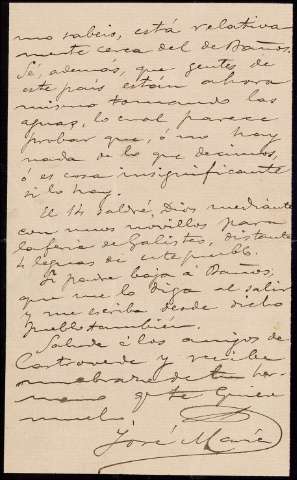 mo sabeis, está relativa
mente cerca del de Baños.
Sé, además, que gentes de
este país están ahora
mismo tomando las
aguas, lo cual parece
probar que, ó no hay
nada de lo que decimos,
ó es cosa insignificante
si lo hay.
El 14 saldré, Dios mediante
con unos novillos para
la feria de Galisteo, distante
4 leguas de este pueblo.
Si padre baja á Baños,
que me lo diga al salir
y me escriba desde dicho
pueblo también.
Saluda á los amigos de
Castroverde y recibe
un abrazo de tu her-
mano q. te quiere
mucho
José María